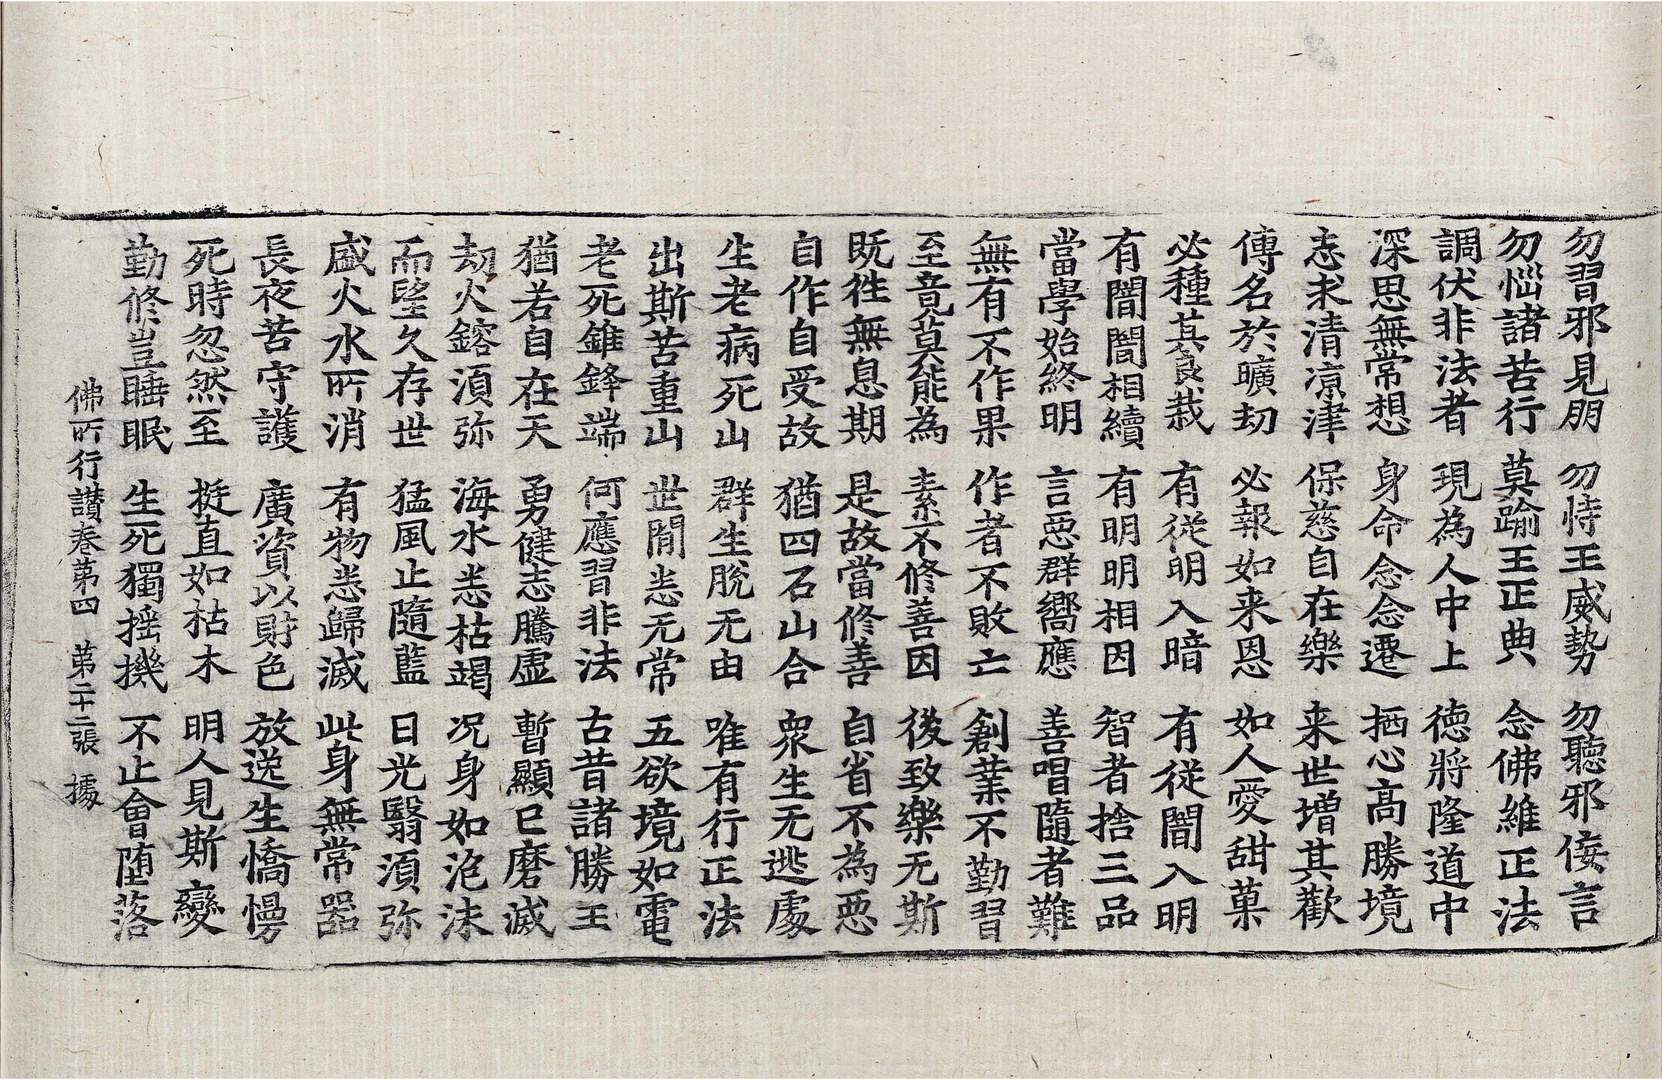 勿習邪見朋 勿恃王威勢 勿聽邪侫言
勿惱諸苦行 莫踰王正典 念佛維正法
調伏非法者 現為人中上 德將隆道中
深思無常想 身命念念遷 栖心高勝境
志求清凉津 保慈自在樂 来世增其歡
傳名於曠劫 必報如来恩 如人愛甜菓
必種其良栽 有從明入暗 有從闇入明
有闇闇相續 有明明相因 智者捨三品
當學始終明 言惡群嚮應 善唱隨者難
無有不作果 作者不敗亡 創業不勤習
至竟莫能為 素不修善因 後致樂无斯
既徃無息期 是故當修善 自省不為惡
自作自受故 猶四石山合 衆生无逃處
生老病死山 群生脫无由 唯有行正法
出斯苦重山 世閒恙无常 五欲境如電
老死錐鋒端 何應習非法 古昔諸勝王
猶若自在天 勇健志騰虛 暫顯已磨滅
劫火鎔湏弥 海水恙枯竭 况身如泡沫
而望久存世 猛風止隨藍 日光翳湏弥
盛火水所消 有物恙歸滅 此身無常器
長夜苦守護 廣資以財色 放逸生憍慢
死時忽然至 挺直如枯木 明人見斯變
勤修豈睡眠 生死獨摇機 不止會堕落
佛所行讃卷第四 第二十二張 據